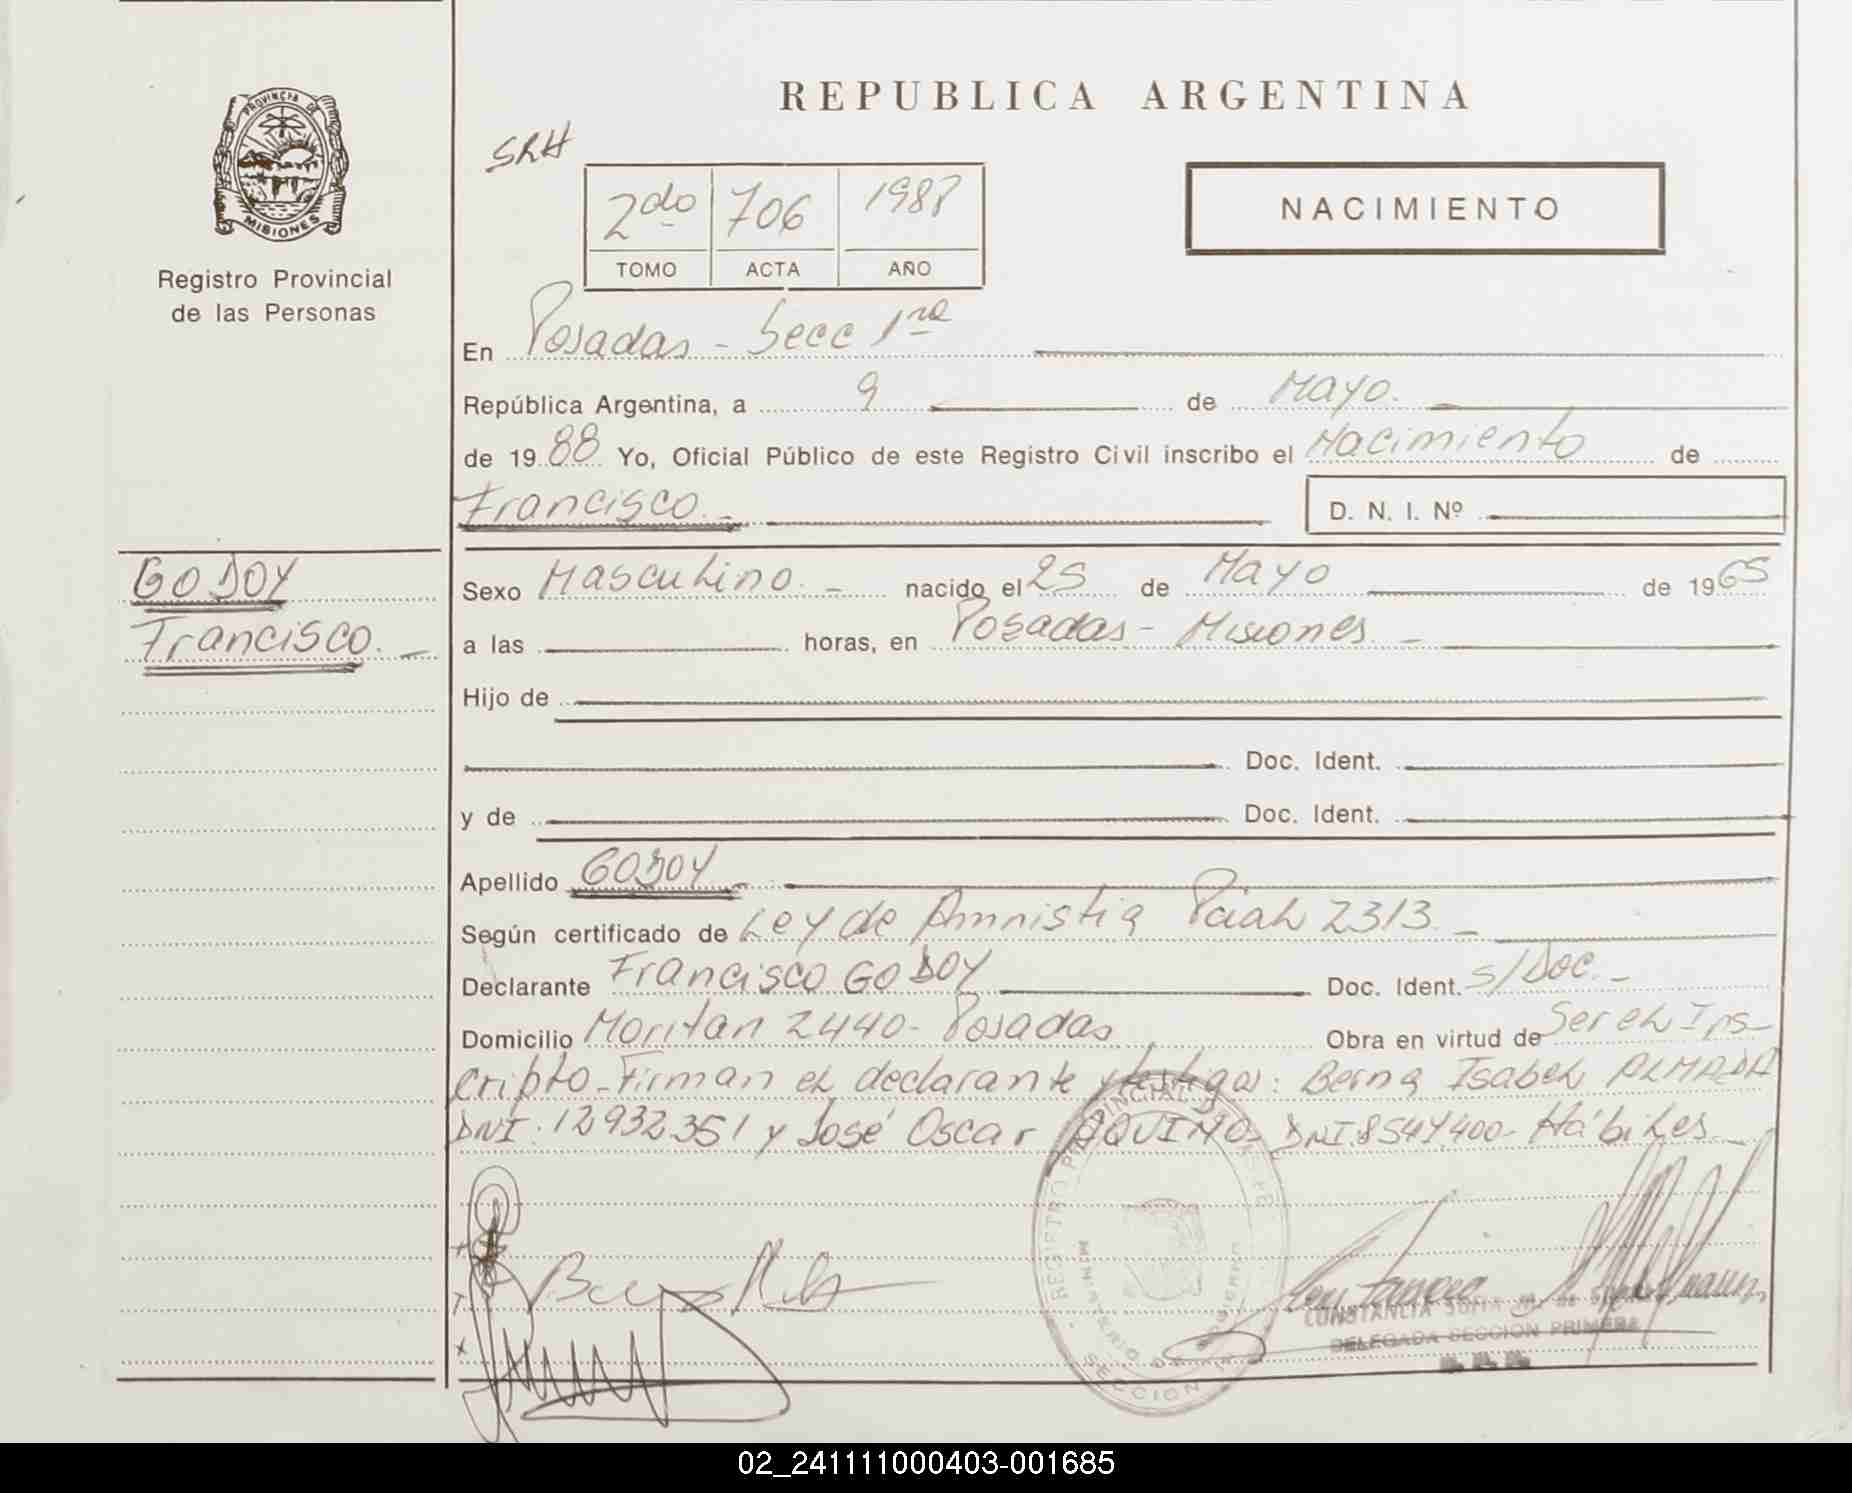 PROVINCIA DE
MISIONES
Registro Provincial
de las Personas
REPUBLICA ARGENTINA
SRH
2do 706 1988
TOMO ACTA AÑO
NACIMIENTO
En Posadas - Secc 1ra
República Argentina, a 9 de Mayo.
de 1988 Yo, Oficial Público de este Registro Civil inscribo el Nacimiento de
Francisco.-
D. N. I. Nº
GODOY
Francisco.-
Sexo Masculino.- nacido el 25 de Mayo de 1965
a las horas, en Posadas - Misiones.-
Hijo de
Doc. Ident.
y de Doc. Ident.
Apellido GODOY
Según certificado de Ley de Amnistia Pcial 2313.-
Declarante Francisco GODOY Doc. Ident. s/Doc.-
Domicilio 2440- Posadas Obra en virtud de Ser el Ins-
cripto-Firman el declarante y testigos: Isabel ALMADA
DNI: 12932351 y José Oscar AQUINO- DNI.8544400- Hábiles.-
REGISTRO PROVINCIAL
MINISTERIO DE GOBIERNO
SECCION
CONSTANCIA
DELEGADA SECCION PRIMERA
02_241111000403-001685